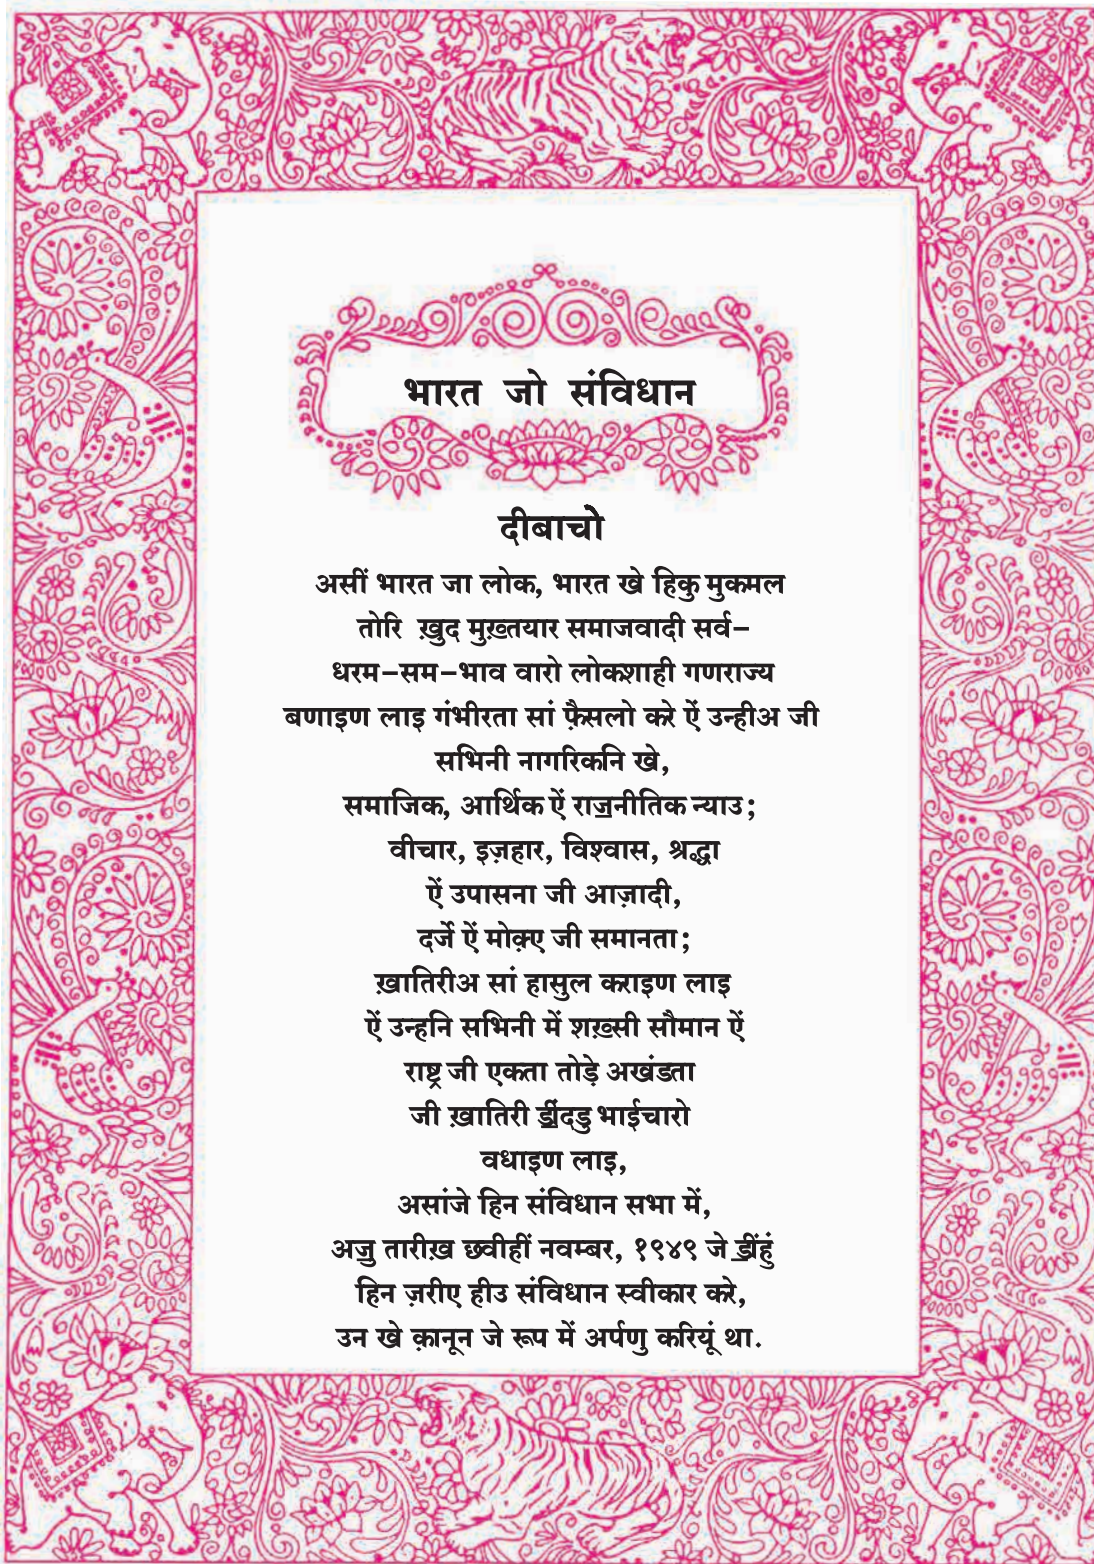 भारत जो संविधान
दीबाचो
असीं भारत जा लोक, भारत खे हिकु मुकमल
तोरि ख़ुद मुख़्तयार समाजवादी सर्व–
धरम–सम–भाव वारो लोकशाही गणराज्य
बणाइण लाइ गंभीरता सां फ़ैसलो करे ऐं उन्हीअ जी
सभिनी नागरिकनि खे,
समाजिक, आर्थिक ऐं राॼनीतिक न्याउ;
वीचार, इज़हार, विश्वास, श्रद्धा
ऐं उपासना जी आज़ादी,
दर्जे ऐं मोक़ए जी समानता;
ख़ातिरीअ सां हासुल कराइण लाइ
ऐं उन्हनि सभिनी में शख़्सी सौमान ऐं
राष्ट्र जी एकता तोड़े अखंडता
जी ख़ातिरी ॾींदड़ु भाईचारो
वधाइण लाइ,
असांजे हिन संविधान सभा में,
अॼु तारीख़ छवीहीं नवम्बर, १९४९ जे ॾींहुं
हिन ज़रीए हीउ संविधान स्वीकार करे,
उन खे क़ानून जे रूप में अर्पणु करियूं था.